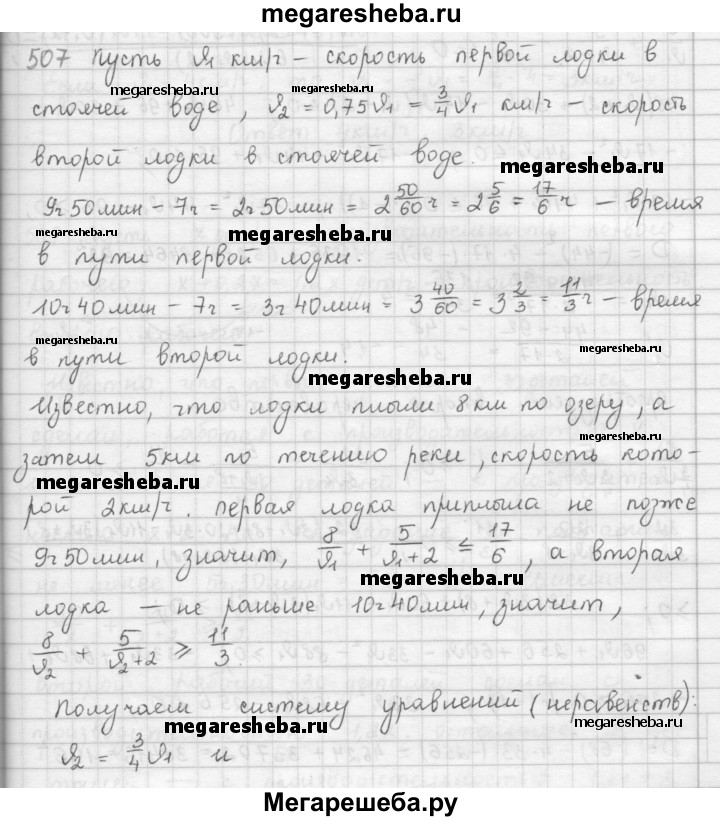 megaresheba.ru
507 Пусть v₁ км/ч – скорость первой лодки в
megaresheba.ru
megaresheba.ru
стоячей воде, v₂ = 0,75v₁ = 3/4 v₁ км/ч – скорость
второй лодки в стоячей воде.
megaresheba.ru
9ч 50мин – 7ч = 2ч 50мин = 2 50/60 ч = 2 5/6 = 17/6 ч – время
megaresheba.ru
megaresheba.ru
в пути первой лодки.
10ч 40мин – 7ч = 3ч 40мин = 3 40/60 = 3 2/3 = 11/3 ч – время
в пути второй лодки.
megaresheba.ru
Известно, что лодки плыли 8 км по озеру, а
megaresheba.ru
затем 5км по течению реки, скорость кото-
megaresheba.ru
рой 2км/ч. первая лодка приплыла не позже
9ч 50мин, значит, 8/v₁ + 5/(v₁+2) ≤ 17/6, а вторая
megaresheba.ru
лодка – не раньше 10ч 40мин, значит,
8/v₂ + 5/(v₂+2) ⩾ 11/3.
Получаем систему уравнений (неравенств):
megaresheba.ru
megaresheba.ru
v₂ = 3/4 v₁ и
Мегарешеба.ру